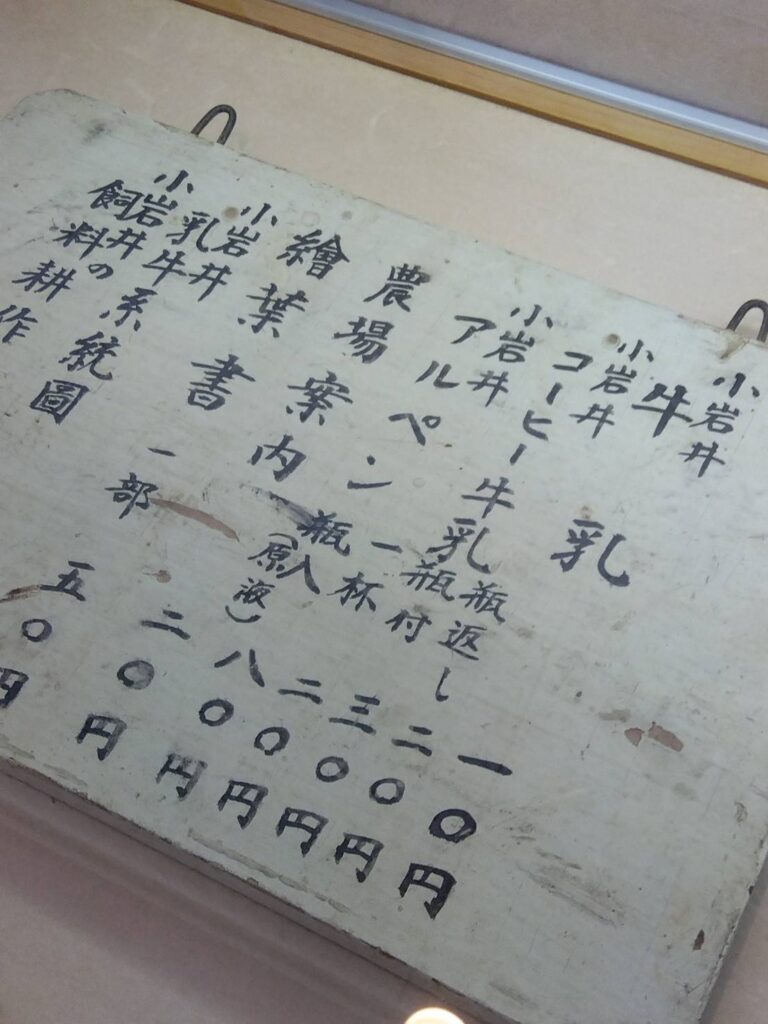 小岩井
牛乳 一〇円
小岩井
コーヒー牛乳 瓶返し 二〇円
瓶付 三〇円
小岩井
アルペン 一杯 二〇円
瓶入（原液） 八〇円
農場案内 二〇円
繪葉書 一部 五〇円
小岩井
乳牛系統圖
小岩井の
飼料耕作